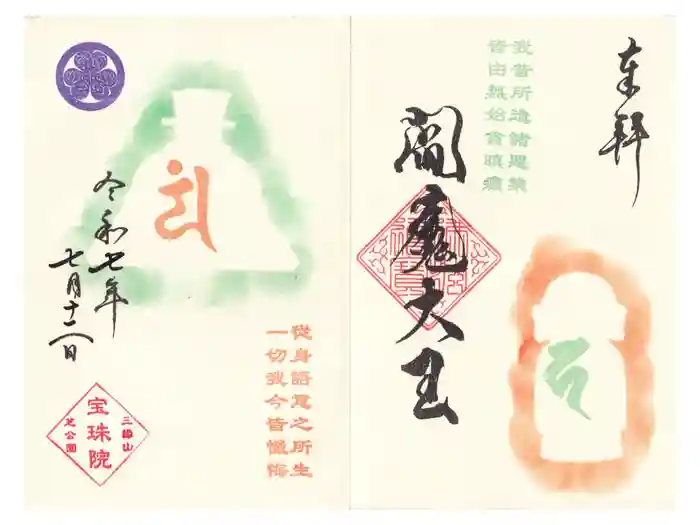 奉拝
我昔所造諸悪業
皆由無始貪瞋癡
閻魔大王
令和七年
七月十二日
從身語意之所生
一切我今皆懺悔
三縁山
宝珠院
芝公園